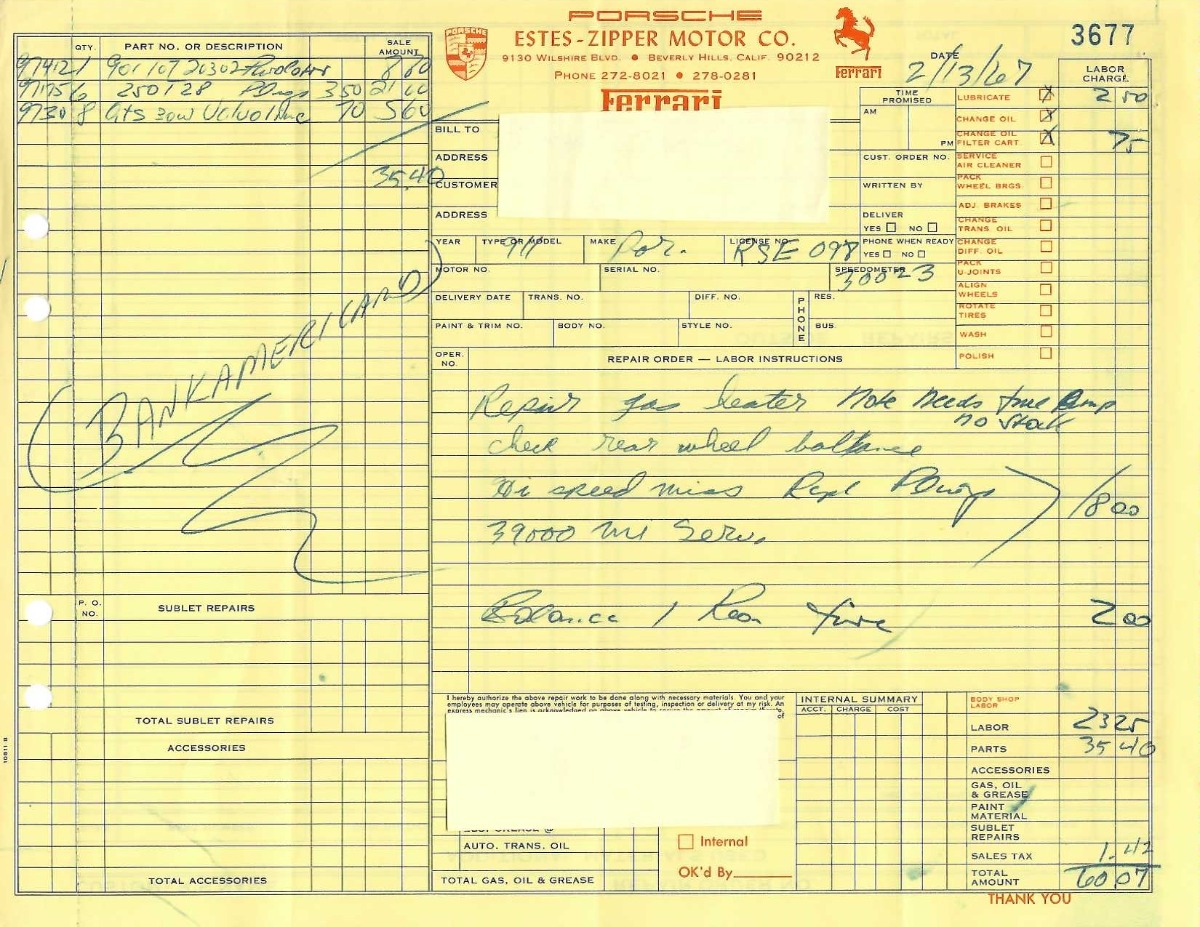 PORSCHE
PORSCHE
ESTES-ZIPPER MOTOR CO.
9130 WILSHIRE BLVD. • BEVERLY HILLS, CALIF. 90212
PHONE 272-8021 • 278-0281
Ferrari
Ferrari
3677
DATE 2/13/67
QTY. PART NO. OR DESCRIPTION SALE AMOUNT
97412 1 901 107 20302 8 80
6 250 P 28 PDugs 3 50 21 00
9730 8 qts 30W Valvoline 70 5 60
35.40
(BANKAMERICARD)
P. O. NO. SUBLET REPAIRS
TOTAL SUBLET REPAIRS
ACCESSORIES
TOTAL ACCESSORIES
10811 B
BILL TO
ADDRESS
CUSTOMER
ADDRESS
TIME PROMISED
AM
PM
CUST. ORDER NO.
WRITTEN BY
DELIVER
YES NO
PHONE WHEN READY
YES NO
LABOR CHARGE
LUBRICATE X 2 50
CHANGE OIL X
CHANGE OIL FILTER CART. X 75
SERVICE AIR CLEANER
PACK WHEEL BRGS
ADJ. BRAKES
CHANGE TRANS OIL
CHANGE DIFF. OIL
PACK U-JOINTS
ALIGN WHEELS
ROTATE TIRES
WASH
POLISH
YEAR TYPE OR MODEL 911 MAKE Por. LICENSE NO. RSE 098
MOTOR NO. SERIAL NO. SPEEDOMETER 30023
DELIVERY DATE TRANS. NO. DIFF. NO. PHONE RES.
PAINT & TRIM NO. BODY NO. STYLE NO. BUS.
OPER. NO. REPAIR ORDER — LABOR INSTRUCTIONS
Repair gas heater Note Needs
no stock
check rear wheel
Hi speed miss Repl
39000 mi Serv. 18 00
Balance 1 Rear tire 2 00
I hereby authorize the above repair work to be done along with necessary materials. You and your
employees may operate above vehicle for purposes of testing, inspection or delivery at my risk. An
express mechanic's lien is acknowledged on above vehicle to secure the amount of repairs thereto.
of
AUTO. TRANS. OIL
TOTAL GAS, OIL & GREASE
INTERNAL SUMMARY
ACCT. CHARGE COST
Internal
OK'd By
BODY SHOP LABOR
LABOR 23 25
PARTS 35 40
ACCESSORIES
GAS, OIL & GREASE
PAINT MATERIAL
SUBLET REPAIRS
SALES TAX 1.42
TOTAL AMOUNT 60 07
THANK YOU